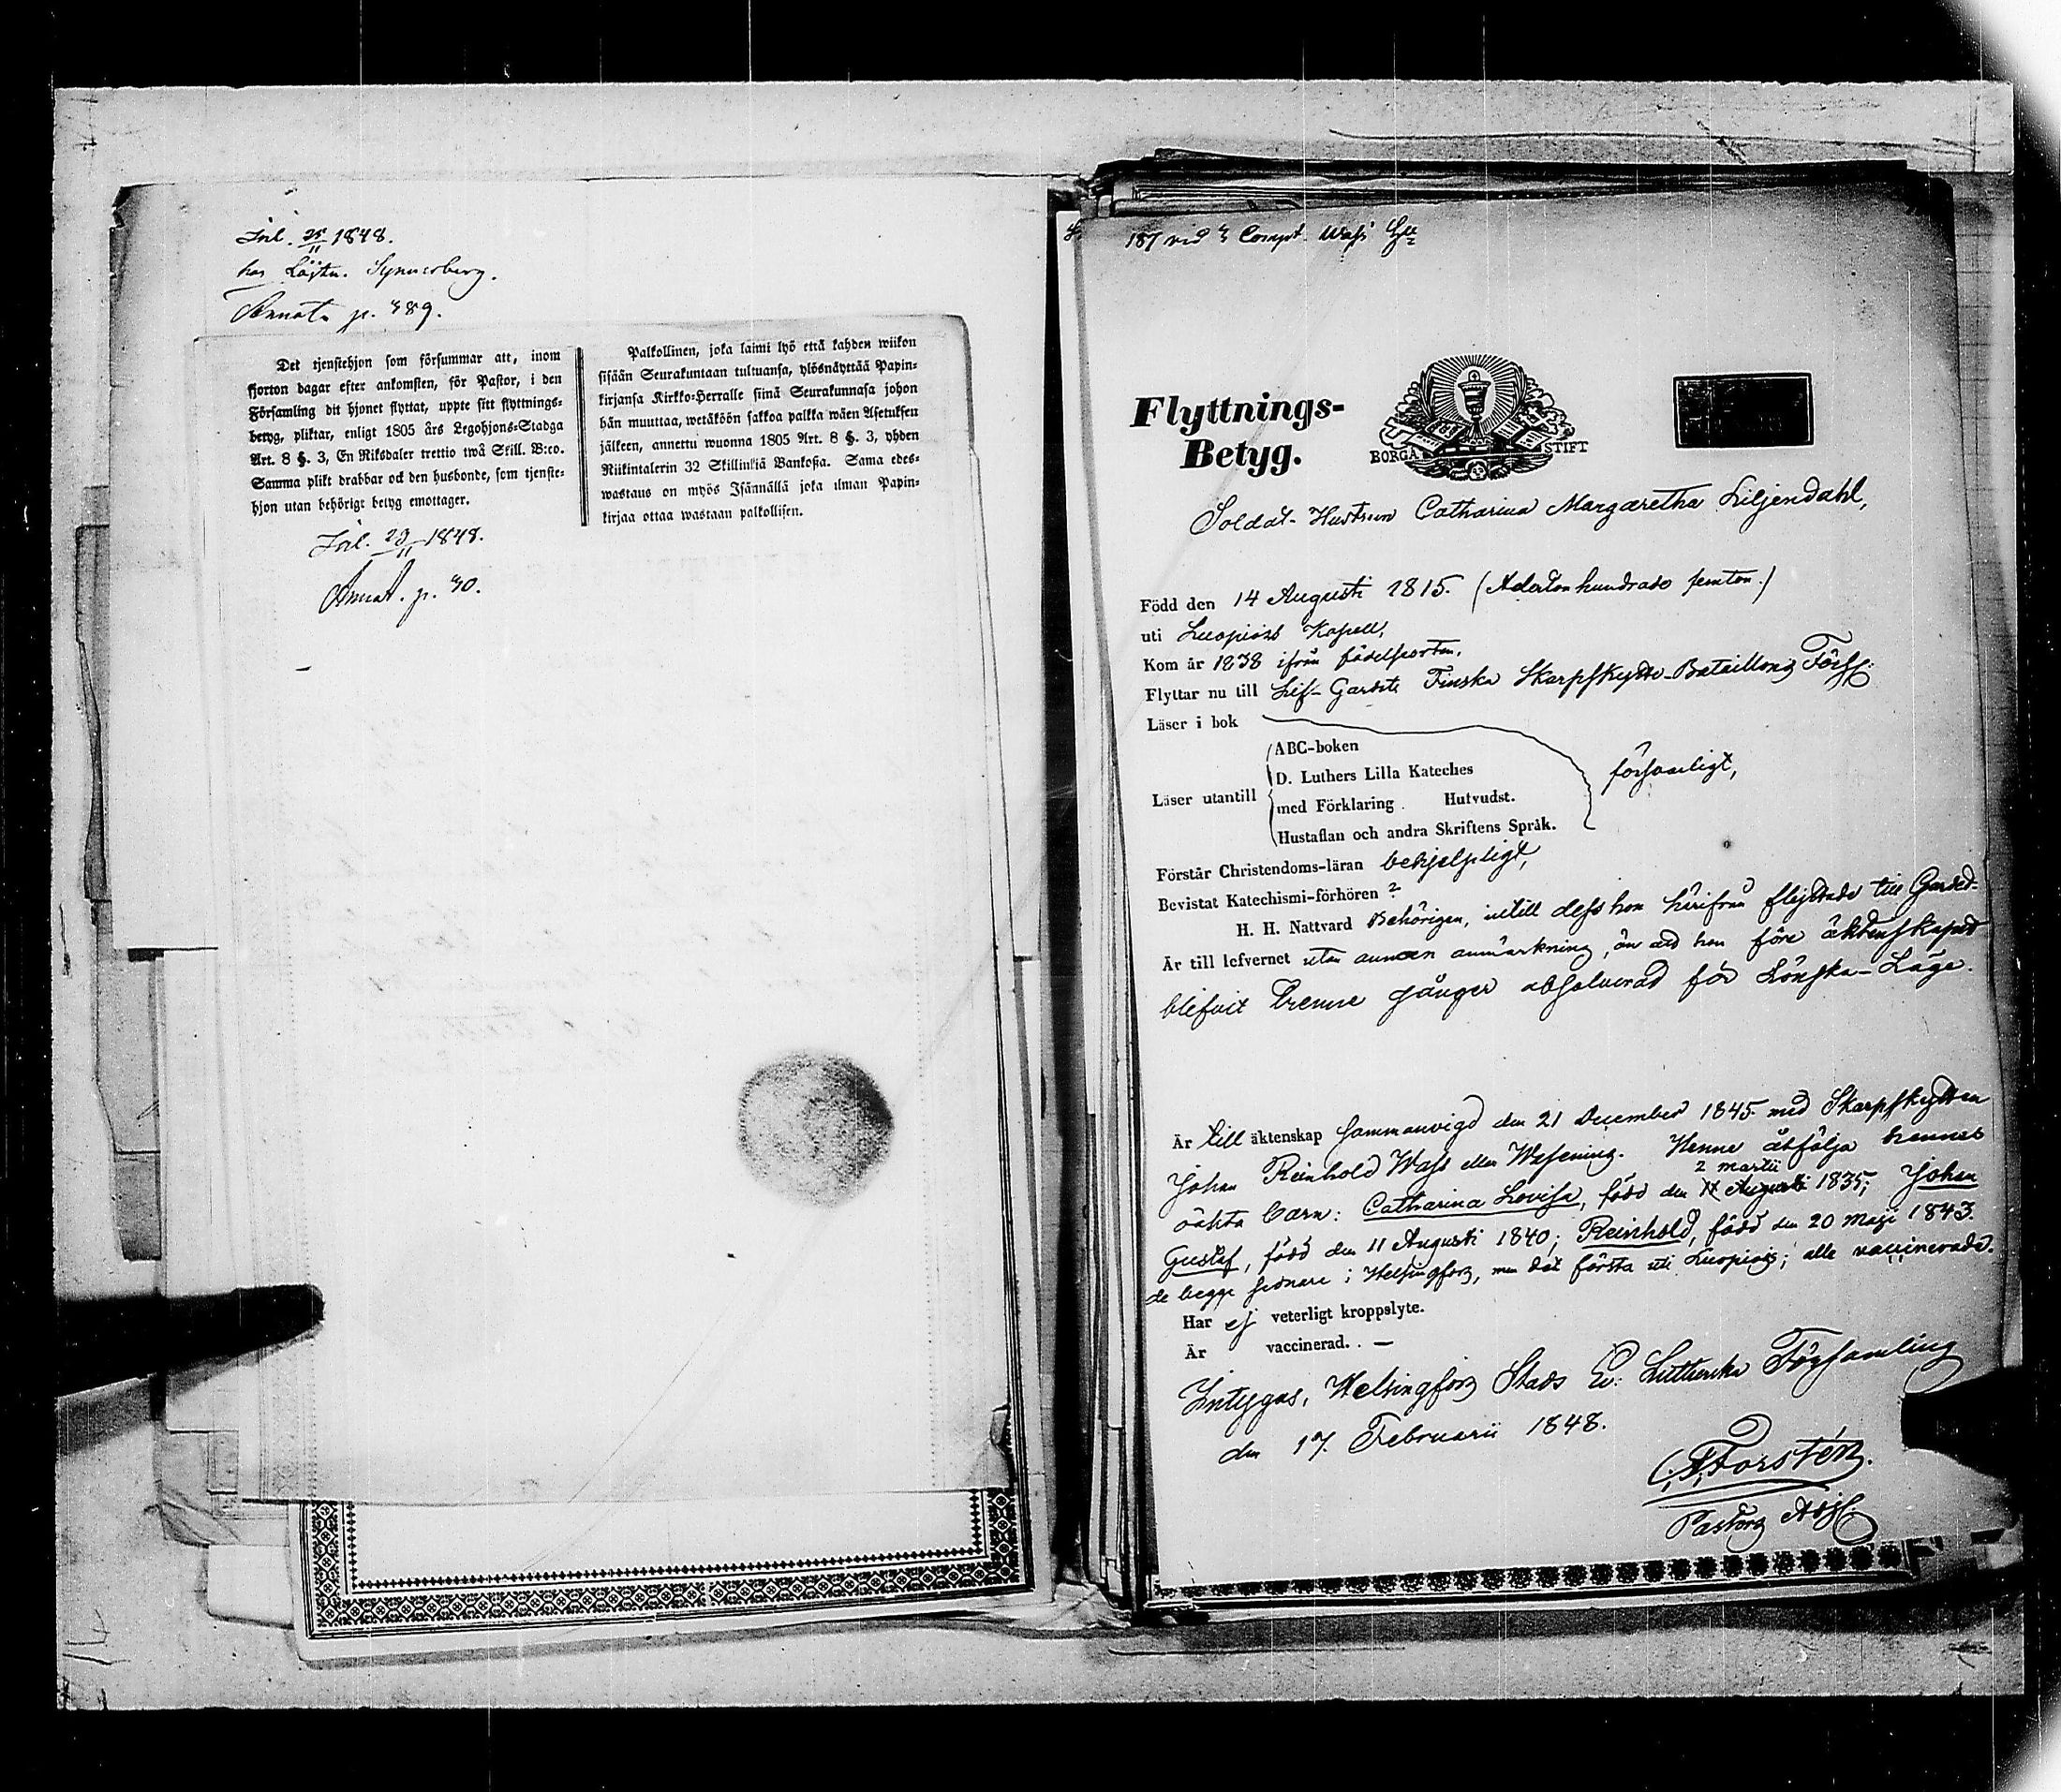 Inl. 25/11 1848.
hos Löjtn. Synnerberg.
Annot. p. 489.
Det tjenstehjon som försummar att, inom
fjorton dagar efter ankomsten, för Pastor, i den
Församling dit hjonet flyttat, uppte sitt flyttnings-
betyg, pliktar, enligt 1805 års Legohjons-Stadga
Art. 8 §. 3, En Riksdaler trettio twå Skill. B:co.
Samma plikt drabbar ock den husbonde, som tjenste-
hjon utan behörigt betyg emottager.
Palkollinen, joka laimi lyö että kahden wiikon
sisään Seurakuntaan tultuansa, ylösnäyttää Papin-
kirjansa Kirkko-Herralle siinä Seurakunnasa johon
hän muuttaa, wetäköön sakkoa palkka wäen Asetuksen
jälkeen, annettu wuonna 1805 Art. 8 §. 3, yhden
Riikintalerin 32 Skillinkiä Bankosa. Sama edes-
wastaus on myös Isännällä joka ilman Papin-
kirjaa ottaa wastaan palkollisen.
Inl. 23/11 1848.
Annot. p. 40.
187 vid 4 Comp. Wass
Flyttnings-
Betyg.
BORGÅ STIFT
Soldat-Hustrun Catharina Margaretha Liljendahl,
Född den 14 Augusti 1815. (Adertonhundrade femton.)
uti Luopiois Kapell,
Kom år 1838 ifrån födelseorten.
Flyttar nu till Lif-Gardets Finska Skarpskytte-Bataillons Förs.
Läser i bok
Läser utantill
ABC-boken
D. Luthers Lilla Kateches
med Förklaring. Hufvudst.
Hustaflan och andra Skriftens Språk.
försvarligt,
Förstår Christendoms-läran behjelpligt,
Bevistat Katechismi-förhören ?
H. H. Nattvard behörigen, intill dess hon härifrån flyttade till Gardet.
Är till lefvernet utan annan anmärkning, än att hon före äktenskapet
blifvit trenne gånger absolverad för Lönska-Läge.
Är till äktenskap sammanvigd den 21 December 1845 med Skarpskytten
Johan Reinhold Wass eller Wasenius. Henne åtfölja hennes
2 martii
oäkta barn: Catharina Lovisa, född den 11 Augusti 1835; Johan
Gustaf, född den 11 Augusti 1840; Reinhold, född den 20 Maji 1843.
de begge sednare i Helsingfors, men det första uti Luopiois; alle vaccinerade.
Har ej veterligt kroppslyte.
Är vaccinerad. . —
Intygas, Helsingfors Stads Ev: Lutherska Församling
den 17. Februarii 1848.
Forstén.
Pastors Adj.